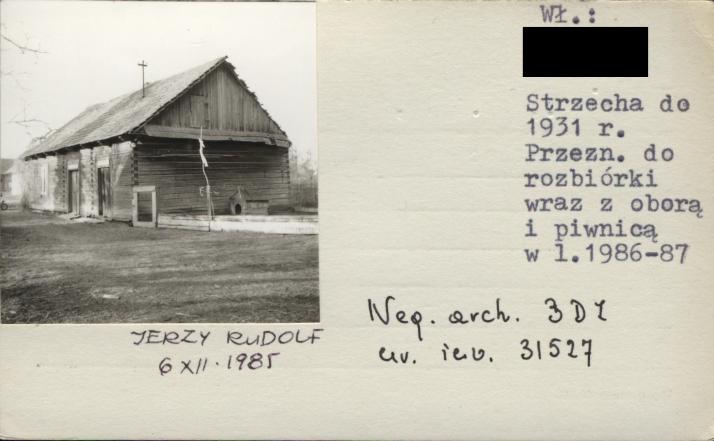 Wł.:
Strzecha do
1931 r.
Przezn. do
rozbiórki
wraz z oborą
i piwnicą
w l.1986-87
JERZY RUDOLF
6 XII. 1985
Neg. arch. 3DZ
nr. inv. 31527